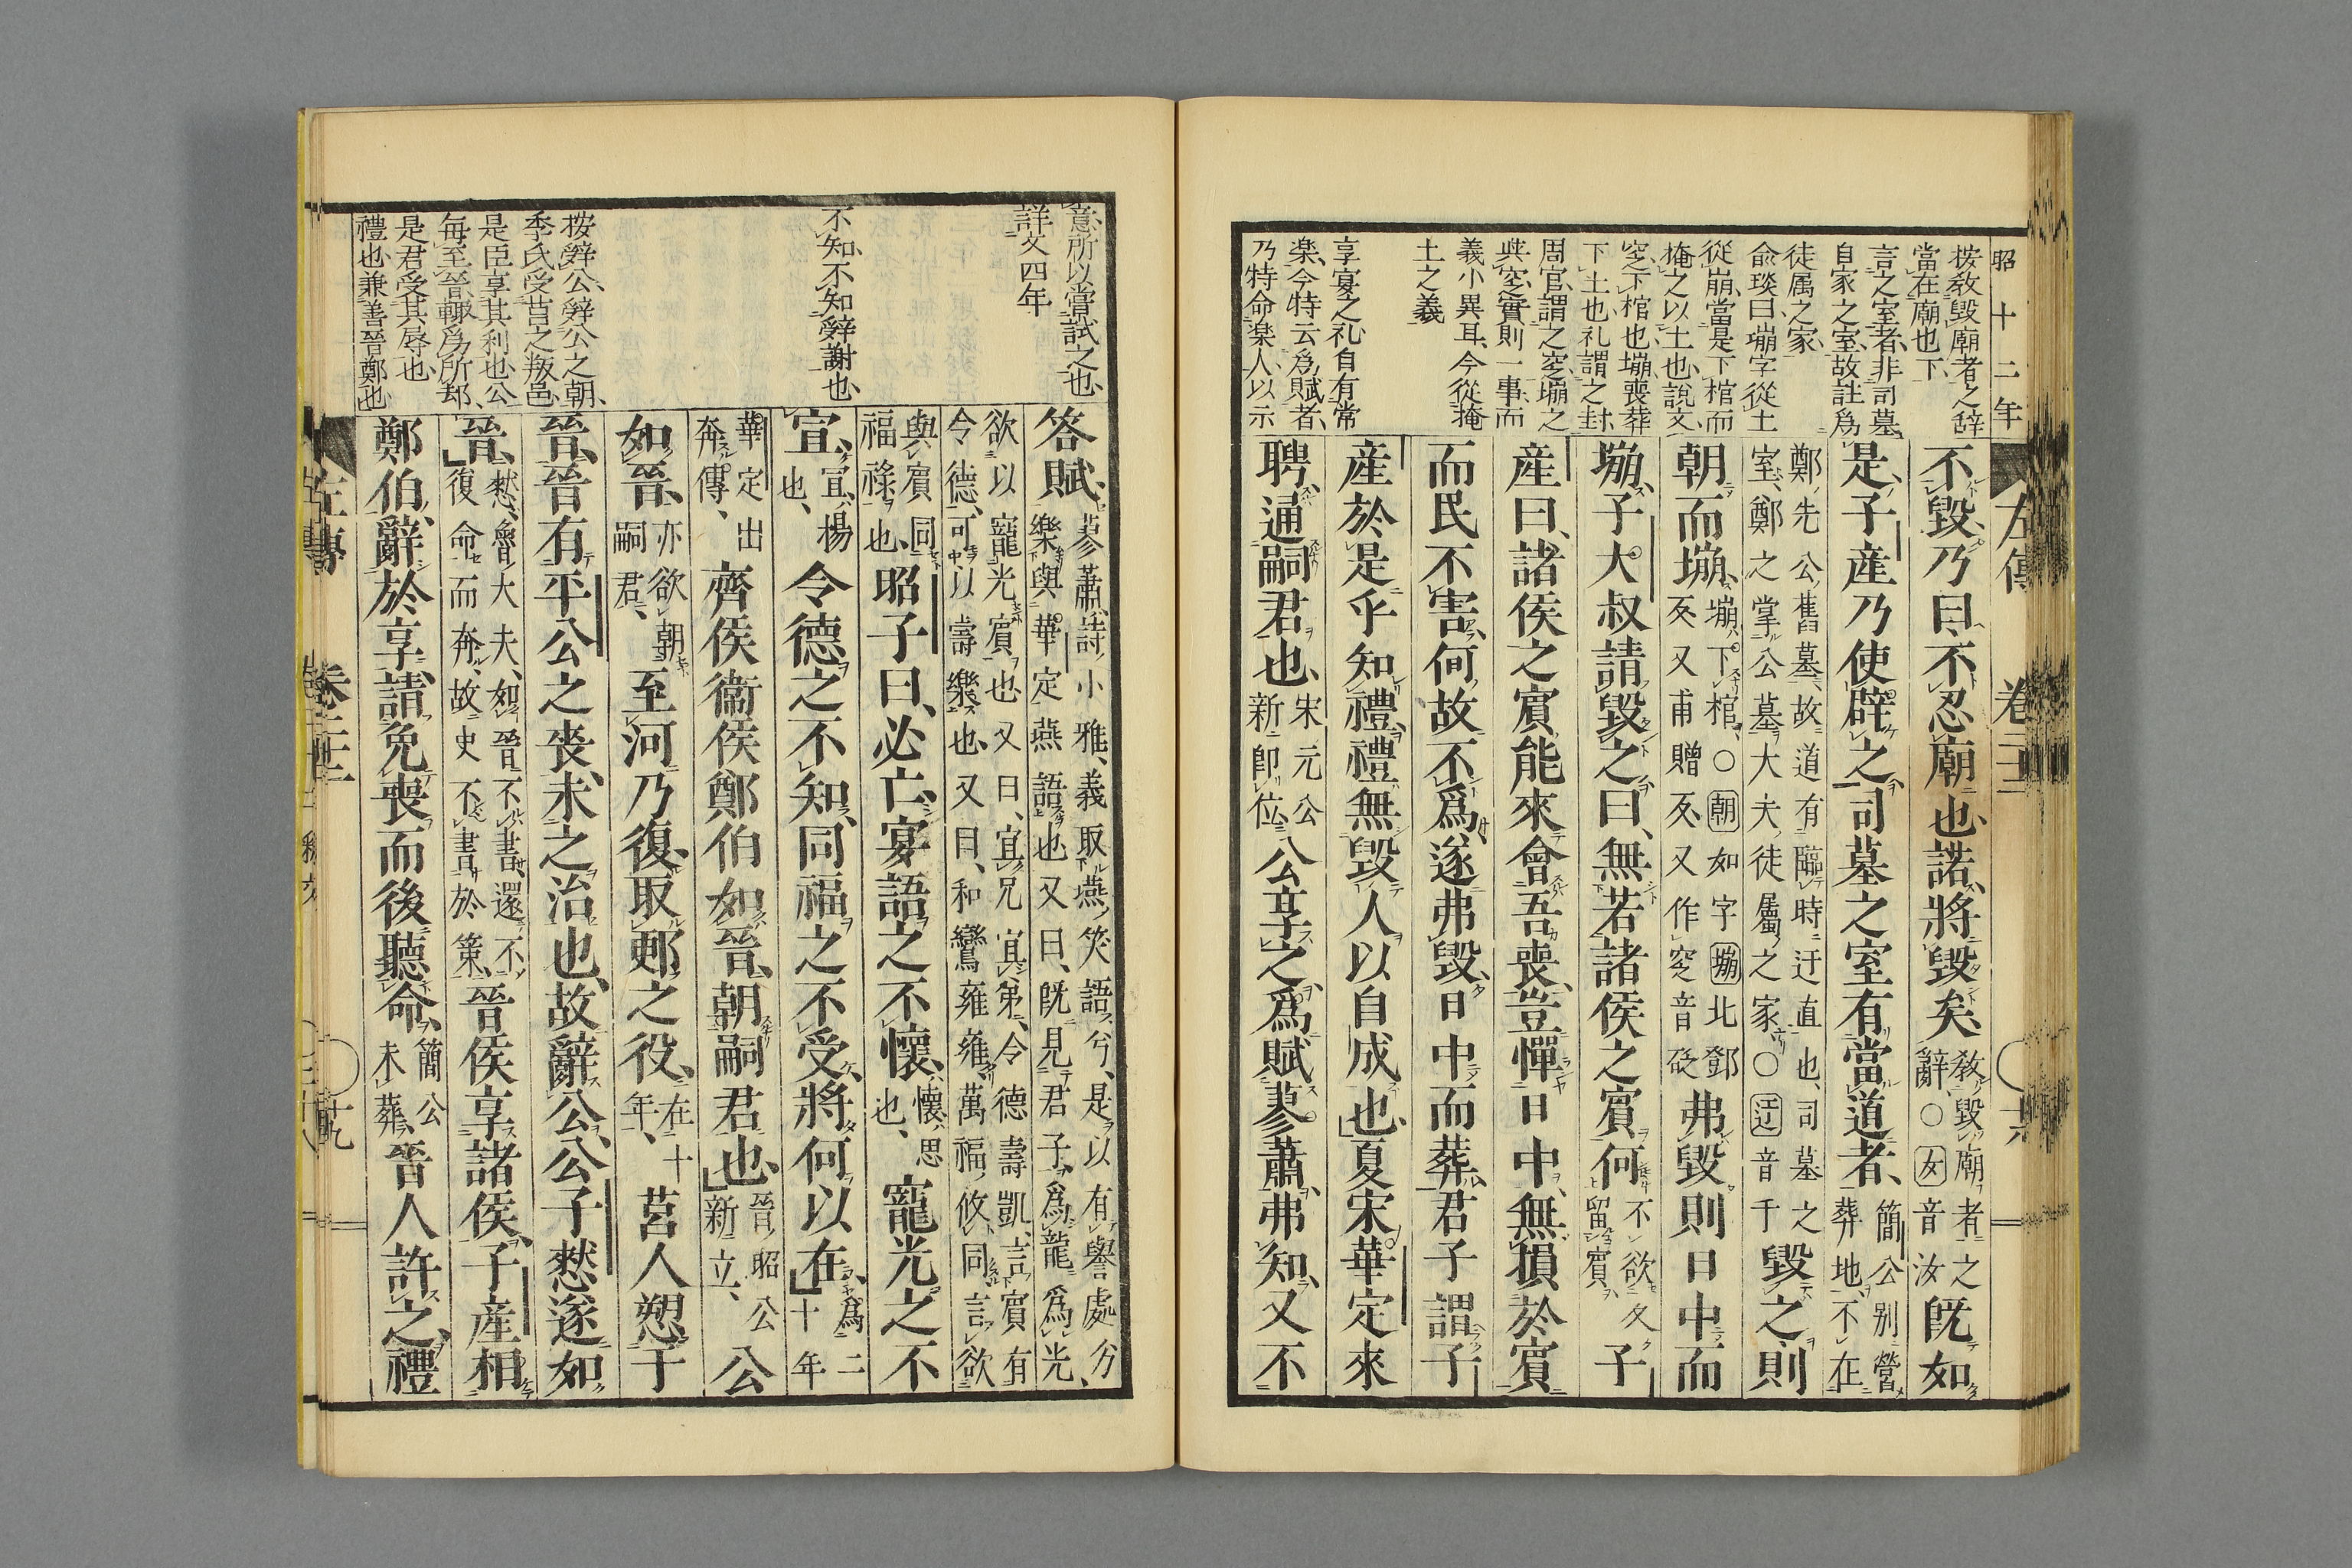 昭十二年
按教毀廟者之辞
當在廟也下
言之室者非司墓
自家之室故註爲
徒属之家
兪琰曰塴字從土
從崩當是下棺而
掩之以土也說文
窆下棺也塴喪葬
下土也礼謂之封
周官謂之窆塴之
與窆實則一事而
義小異耳今從掩
土之義
享宴之礼自有常
楽今特云爲賦者
乃特命楽人以示
左傳 卷二十二 十六
不毀乃曰不忍廟也諾將毀矣
教毀廟者之
辭○女音汝
既如
是子産乃使辟之司墓之室有當道者
簡公別營
葬地不在
鄭先公舊墓故道有臨時迂直也司墓之
室鄭之掌公墓大夫徒屬之家○迂音于
毀之則
朝而塴
塴下棺○朝如字塴北鄧
反又甫贈反又作窆音砭
弗毀則日中而
塴子大叔請毀之曰無若諸侯之賓何
不欲久
留賓
子
産曰諸侯之賓能來會吾喪豈憚日中無損於賓
而民不害何故不爲遂弗毀日中而葬君子謂子
産於是乎知禮禮無毀人以自成也夏宋華定來
聘通嗣君也
宋元公
新卽位
公享之爲賦蓼蕭弗知又不
意所以嘗試之也
詳文四年
不知不知辭謝也
按辭公辭公之朝
季氏受莒之叛邑
是臣享其利也公
每至晉輙爲所却
是君受其辱也
禮也兼善晉鄭也
答賦
蓼蕭詩小雅義取燕笑語兮是以有譽處兮
樂與華定燕語也又曰既見君子爲龍爲光
欲以寵光賓也又曰宜兄宜弟令德壽凱言賓有
令德可以壽樂也又曰和鸞雍雍萬福攸同言欲
與賓同
福祿也
昭子曰必亡宴語之不懷
懷思
也
寵光之不
宣
宣楊
也
令德之不知同福之不受將何以在
爲二
十年
華定出
奔傳
齊侯衞侯鄭伯如晉朝嗣君也
晉昭公
新立
公
如晉
亦欲朝
嗣君
至河乃復取郠之役
在十
年
莒人愬于
晉晉有平公之喪未之治也故辭公公子憖遂如
晉
憖魯大夫如晉不書還不
復命而奔故史不書於策
晉侯享諸侯子産相
鄭伯辭於享請免喪而後聽命
簡公
未葬
晉人許之禮
左傳 卷二十二 十九